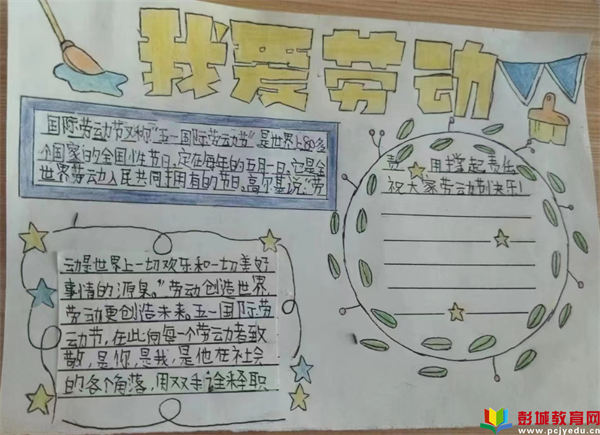 我爱劳动
国际劳动节又称"五一国际劳动节"是世界上80多
个国家的全国性节日,定在每年的五月一日,它是全
世界劳动人民共同拥有的节日。高尔基说:"劳
动是世界上一切欢乐和一切美好
事情的源泉。"劳动创造世界
劳动更创造未来。五一国际劳
动节,在此向每一个劳动者致
敬,是你,是我,是他在社会
的各个角落,用双手诠释职
责 用撑起责任
祝大家劳动节快乐!
彭城教育网
www.pcjyedu.cn